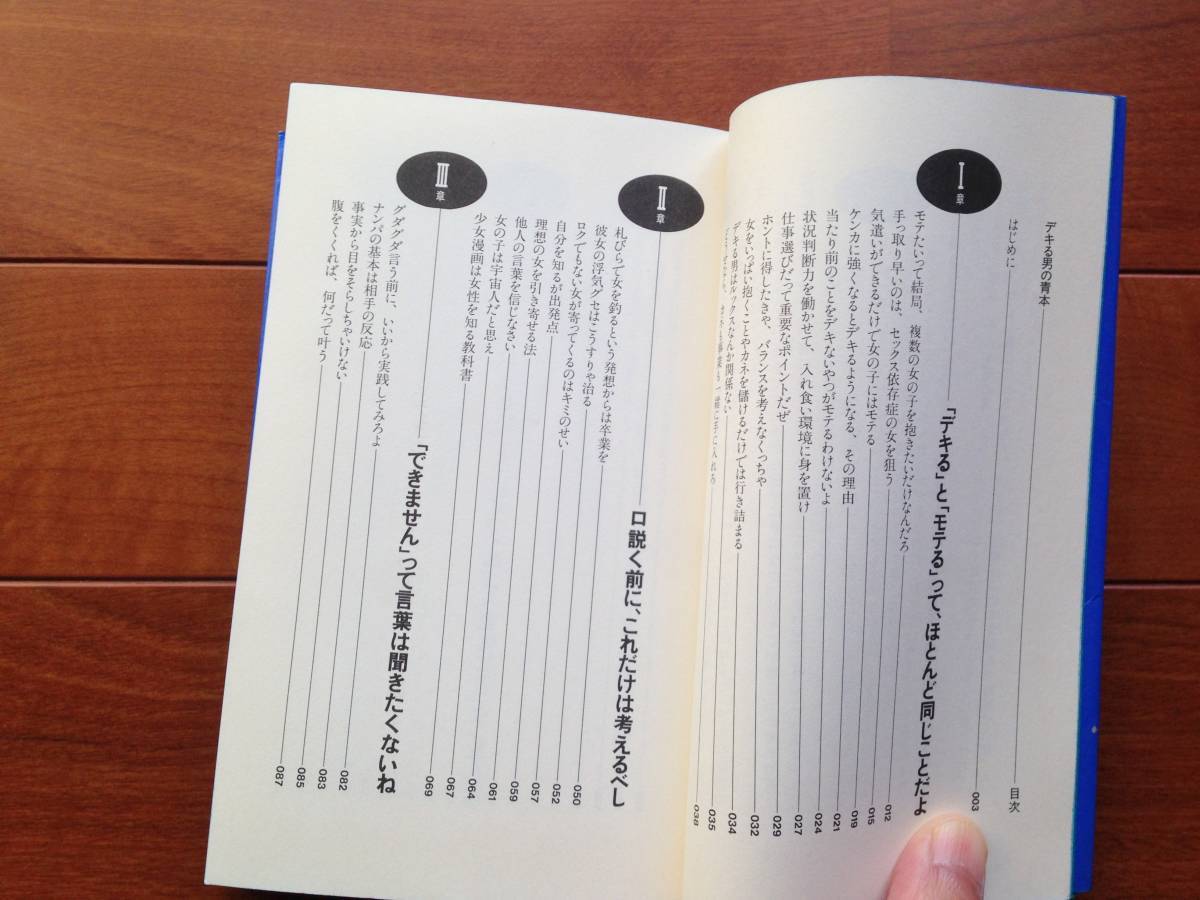 デキる男の青本
目次
はじめに 003
Ⅰ章 「デキる」と「モテる」って、ほとんど同じことだよ
モテたいって結局、複数の女の子を抱きたいだけなんだろ 012
手っ取り早いのは、セックス依存症の女を狙う 015
気遣いができるだけで女の子にはモテる 019
ケンカに強くなるとデキるようになる、その理由 021
当たり前のことをデキないやつがモテるわけないよ 024
状況判断力を働かせて、入れ食い環境に身を置け 027
仕事選びだって重要なポイントだぜ 029
ホントに得したきゃ、バランスを考えなくっちゃ 032
女をいっぱい抱くことやカネを儲けるだけでは行き詰まる 034
デキる男はルックスなんか関係ない 035
038
Ⅱ章 口説く前に、これだけは考えるべし
札びらで女を釣るという発想からは卒業を 050
彼女の浮気グセはこうすりゃ治る 052
ロクでもない女が寄ってくるのはキミのせい 057
自分を知るが出発点 059
理想の女を引き寄せる法 061
他人の言葉を信じなさい 064
女の子は宇宙人だと思え 067
少女漫画は女性を知る教科書 069
Ⅲ章 「できません」って言葉は聞きたくないね
グダグダ言う前に、いいから実践してみろよ 082
ナンパの基本は相手の反応 083
事実から目をそらしちゃいけない 085
腹をくくれば、何だって叶う 087